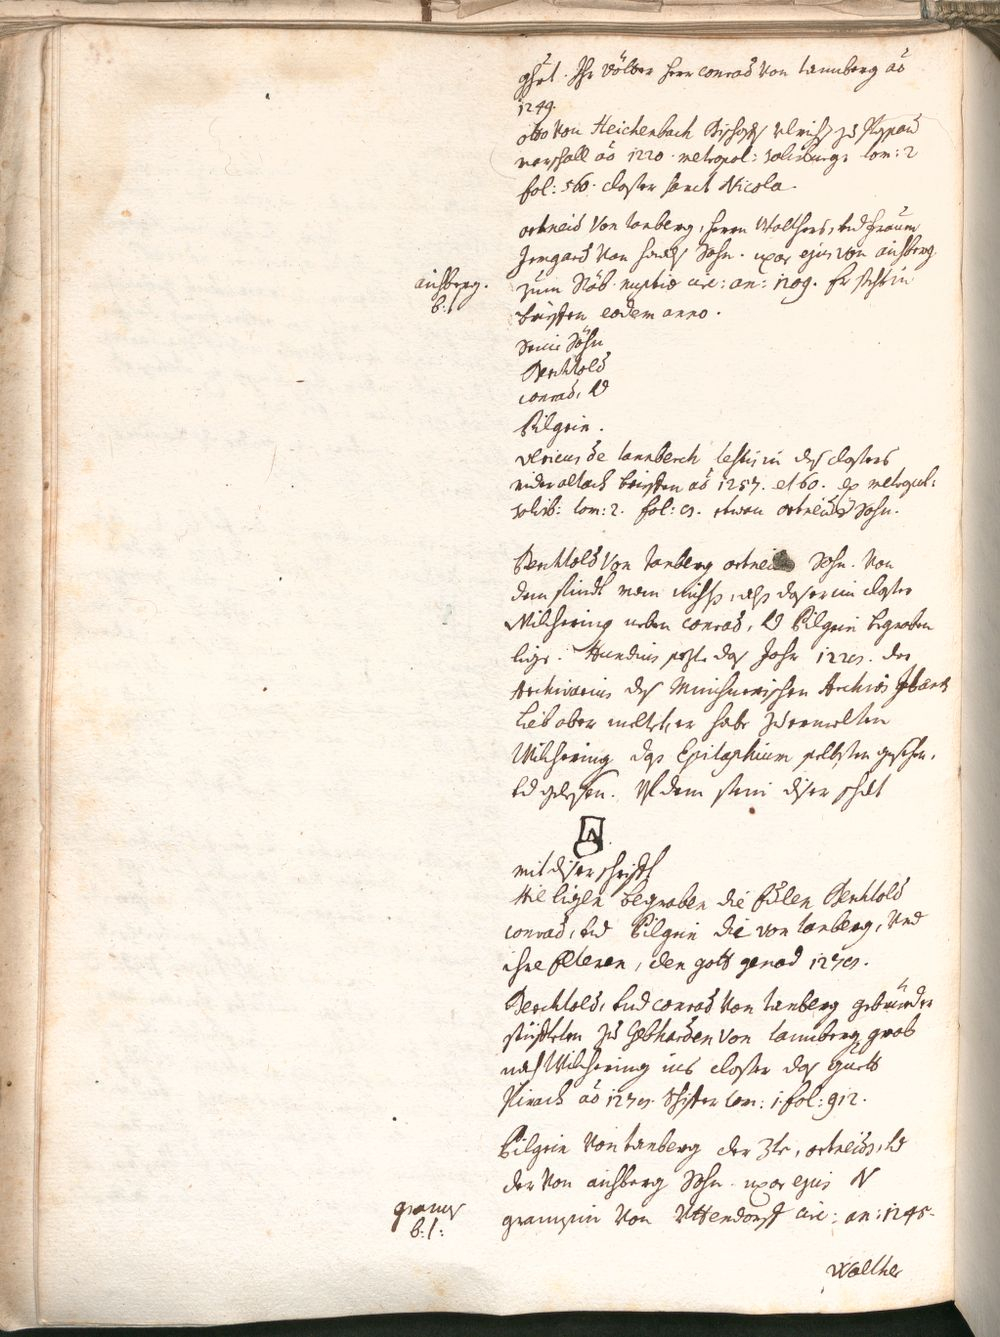 ghrt. Ihr Völter Herr Conrad von tannberg aō
1249.
otto von Heichenbach Bischoffs Ulrichs zu Passau
marschall aō 1220. metropol: salisburg: tom: 2
fol: 560. closter sanct Nicola.
ortneid von tanberg, Herrn Walthers, und Frauen
Irmgard von Sohn. uxor ejus von aichberg
aichberg.
b:
zum nuptiæ circ: an: 1209. Er siglt in
brieffen eodem anno.
Seine Söhn
Berchtold
conrad, V
Pilgrin.
Ulricus de tannberch testis in des closters
nideraltach brieffen aō 1257. et 60. ex metropol:
salisb: tom: 2. fol: etwan ortneids Sohn.
Berchtold von tanberg ortneids Sohn. Von
dem findt man nichts, alß daß er im closter
Wilhering neben conrad, V Pilgrin begraben
lige. Hundius sezt das Jahr der
Archivarius des Münchnerischen Archivs
Lieb aber meldet, er habe zu ermelten
Wilhering das Epitaphium selbsten gesehen,
Vd gelesen. Uf dem stein diser schilt
mit diser schrifft
Hie ligen begraben die Edlen Berchtold
conrad, und Pilgrin die von tanberg, Und
ihre Elteren, den gott genad
Berchtold, Und conrad von tanberg gebrüeder
stüffteten zu Gebharden von tannberg grab
nach Wilhering ins closter das guett
aō tom: 1. fol: 912.
Pilgrin von tanberg der 3te, ortneids, Vd
der von aichberg Sohn. uxor ejus N
granns
b: l:
gransin von Uttendorff circ: an: 1245.
Walther